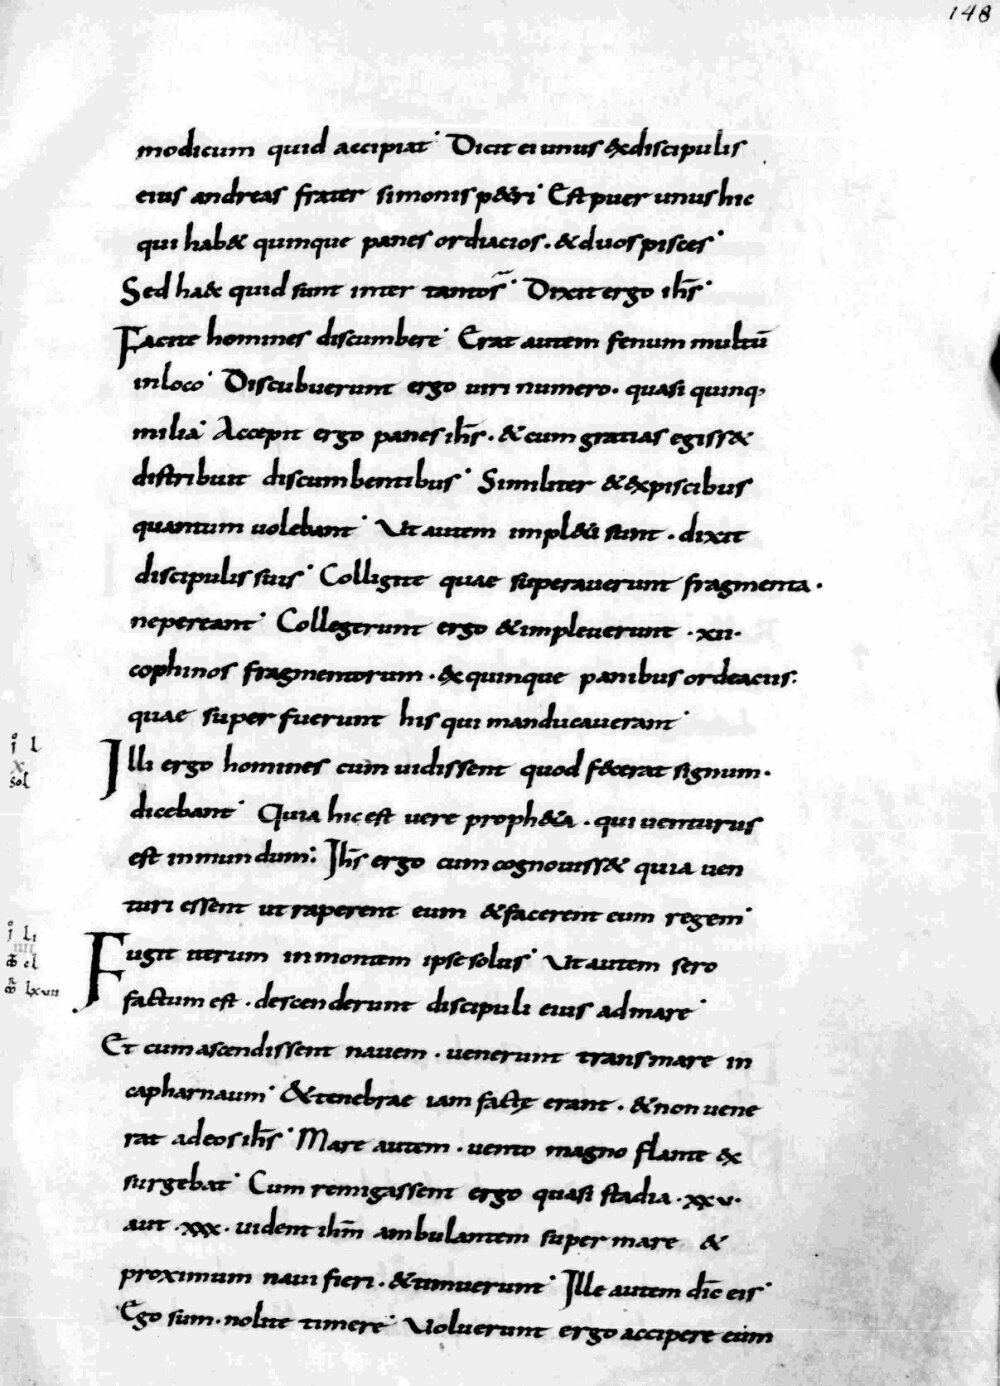 148
modicum quid accipiat· Dicit ei unus ex discipulis
eius andreas frater simonis p&ri· Est puer unus hic
qui hab& quinque panes ordiacios· & duos pisces·
Sed haec quid sunt inter tantos· Dixit ergo ih̅s·
Facite homines discumbere· Erat autem fenum multū
in loco· Discubuerunt ergo uiri numero· quasi quinq·
milia· Accepit ergo panes ih̅s· & cum gratias egiss&
distribuit discumbentibus· Similiter & ex piscibus
quantum uolebant· Ut autem impl&i sunt· dixit
discipulis suis· Colligite quae superauerunt fragmenta·
ne pereant· Collegerunt ergo & impleuerunt ·xii·
cophinos fragmentorum· ex quinque panibus ordeaciis:
quae super fuerunt his qui manducauerant·
Illi ergo homines cum uidissent quod fecerat signum·
dicebant· Quia hic est uere proph&a· qui uenturus
est in mundum: Ih̅s ergo cum cognouiss& quia uen
turi essent ut raperent eum & facerent eum regem·
Fugit iterum in montem ipse solus· Ut autem sero
factum est· descenderunt discipuli eius ad mare·
Et cum ascendissent nauem· uenerunt trans mare in
capharnaum· & tenebrae iam factę erant· & non uene
rat ad eos ih̅s· Mare autem· uento magno flante ex
surgebat· Cum remigassent ergo quasi stadia ·xxv·
aut ·xxx· uident ih̅m ambulantem super mare &
proximum naui fieri· & timuerunt· Ille autem dic̅ eis·
Ego sum· nolite timere· Uoluerunt ergo accipere eum